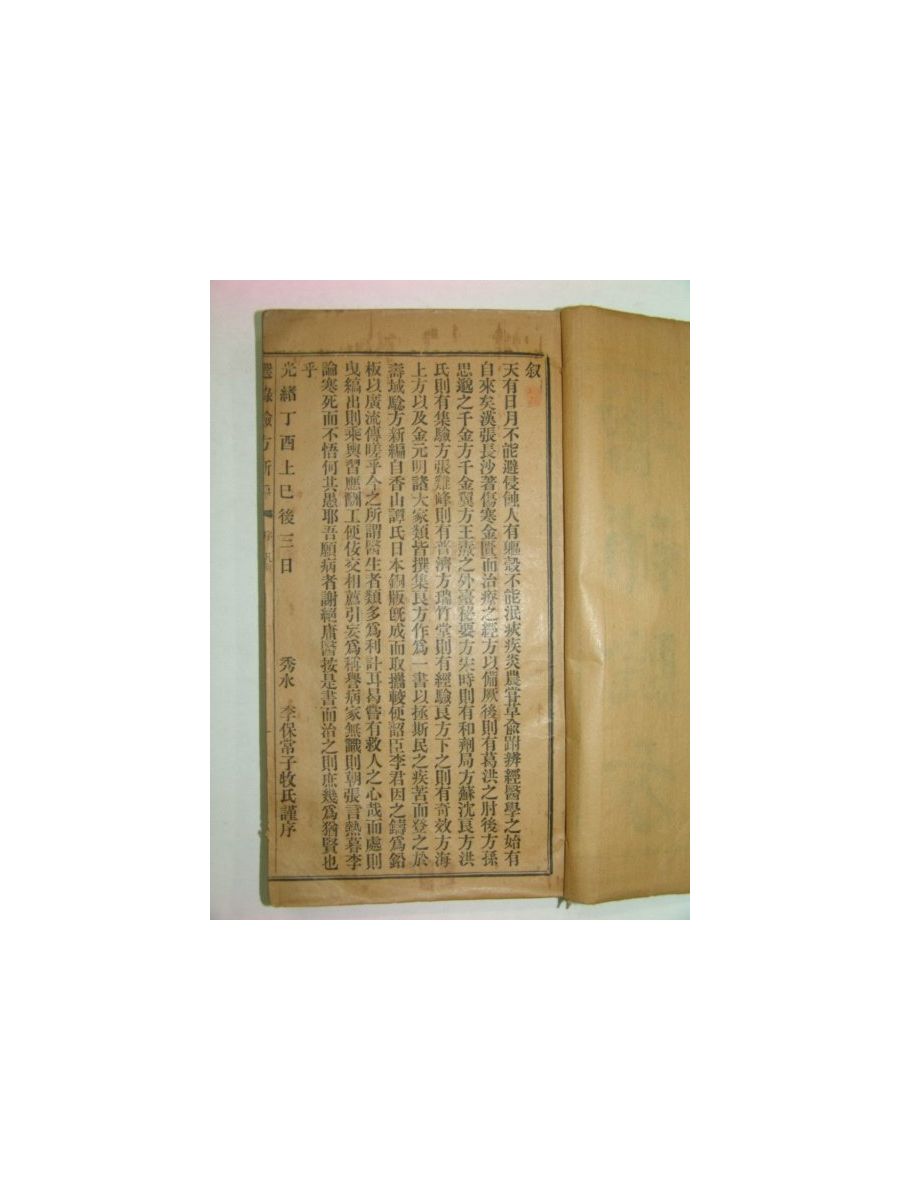 叙
天有日月不能避侵蝕人有軀殼不能泯疾疢炎農嘗草兪跗辨經醫學之始有
自來矣漢張長沙著傷寒金匱而治療之經方以備厥後則有葛洪之肘後方孫
思邈之千金方千金翼方王燾之外臺秘要方宋時則有和劑局方蘇沈良方洪
氏則有集驗方張雞峰則有普濟方瑞竹堂則有經驗良方下之則有奇效方海
上方以及金元明諸大家類皆撰集良方作爲一書以拯斯民之疾苦而登之於
壽域驗方新編自香山譚氏日本銅版旣成而取攜較便詔臣李君因之鑄爲鉛
板以廣流傳嗟乎今之所謂醫生者類多爲利計耳曷嘗有救人之心哉而處則
曳縞出則乘輿習應酬工便佞交相薦引妄爲稱譽病家無識則朝張言熱暮李
論寒死而不悟何其愚耶吾願病者謝絕庸醫按是書而治之則庶幾爲猶賢也
乎
光緖丁酉上巳後三日 秀水 李保常子牧氏謹序
選錄驗方新 序